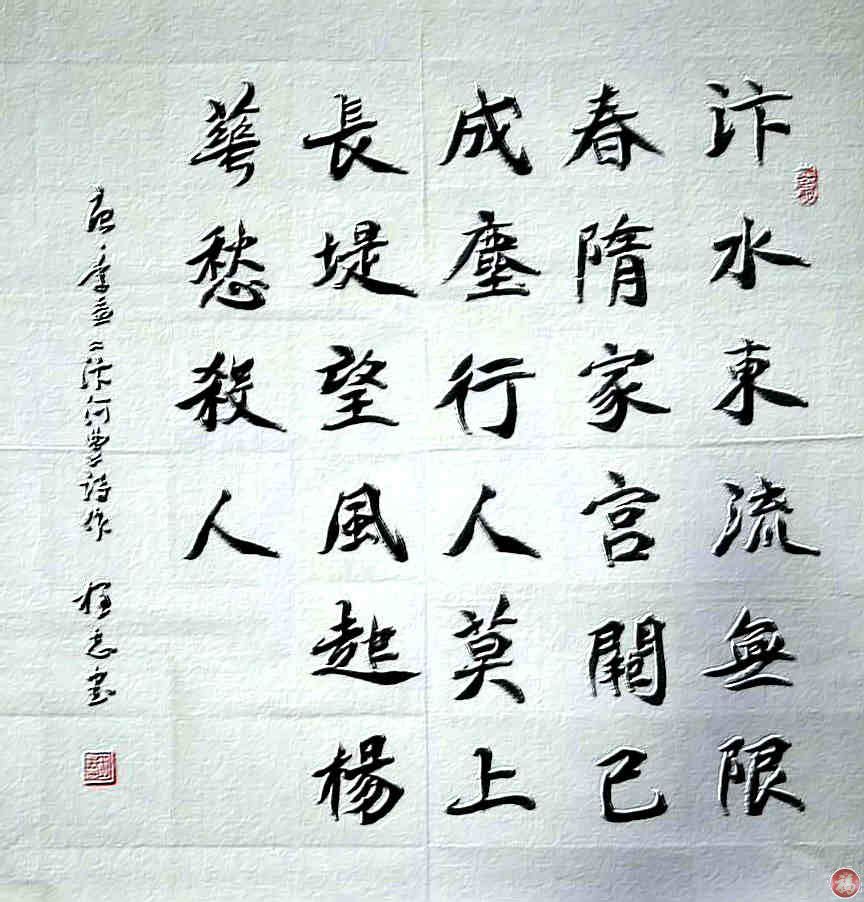 汴水東流無限
春隋家宫闕已
成塵行人莫上
長堤望風起楊
華愁殺人
唐李益汴河曲詩作 書
福